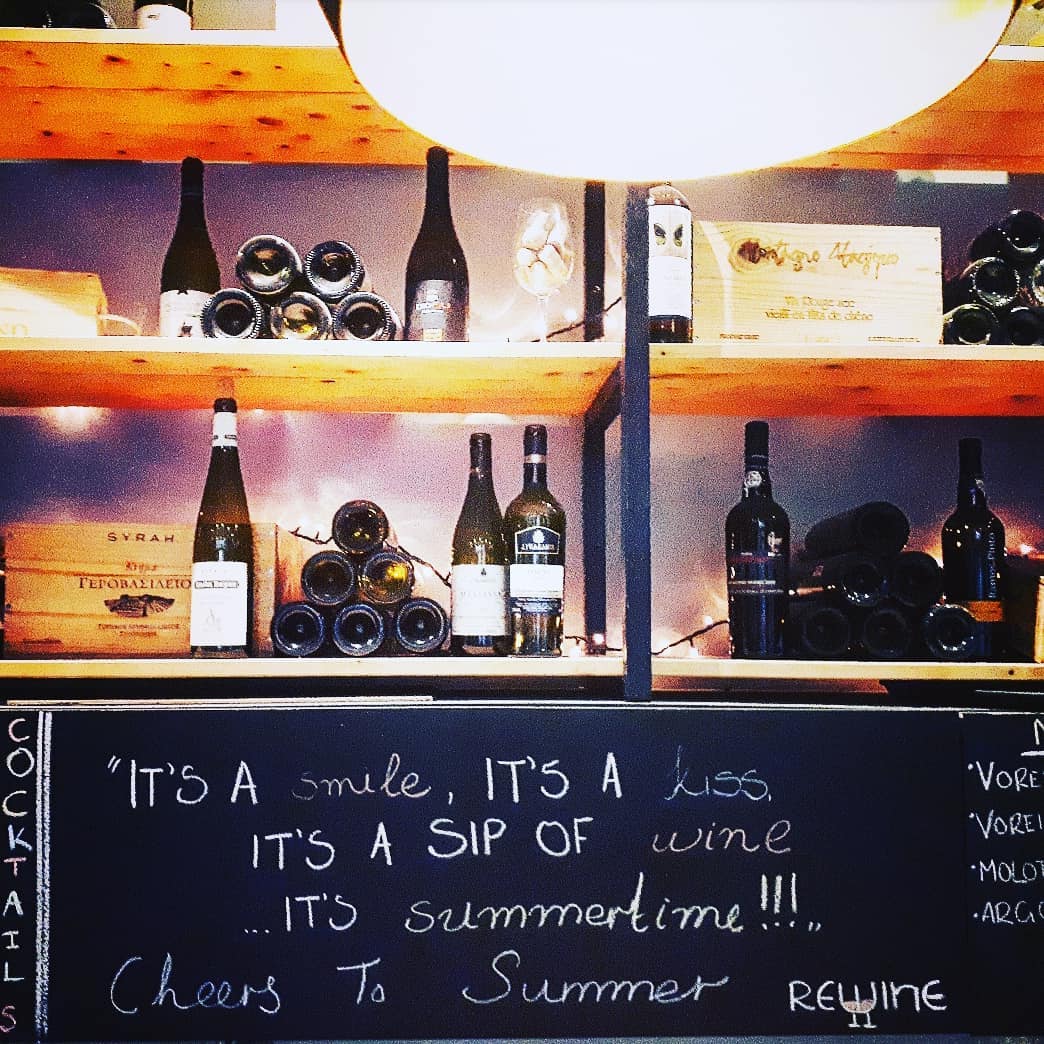 Vin Rouge sec
SYRAH
Κτήμα
ΓΕΡΟΒΑΣΙΛΕΙΟΥ
COCKTAILS
"IT'S A smile, IT'S A kiss,
IT'S A SIP OF wine
...IT'S summertime!!!"
Cheers To Summer
REWINE
·VORE
·VOREI
·MOLOT
·ARGO